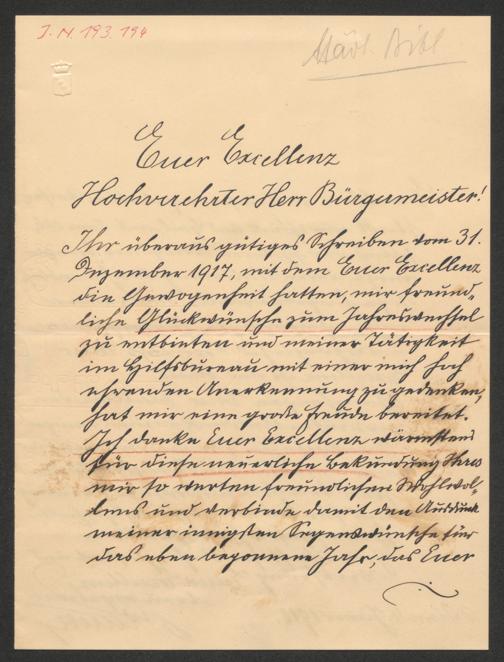 J. N. 193.194
Städt. Bibl.
Euer Excellenz
Hochverehrter Herr Bürgermeister!
Ihr überaus gütiges Schreiben vom 31.
Dezember 1917, mit dem Euer Excellenz
die Gewogenheit hatten, mir freund-
liche Glückwünsche zum Jahreswechsel
zu entbieten und meiner Tätigkeit
im Hilfsbureau mit einer mich hoch
ehrenden Anerkennung zu gedenken,
hat mir eine große Freude bereitet.
Ich danke Euer Excellenz wärmstens
für diese neuerliche Bekundung Ihres
mir so werten freundlichen Wohlwol-
lens und verbinde damit den Ausdruck
meiner innigsten Segenswünsche für
das eben begonnene Jahr, das Euer